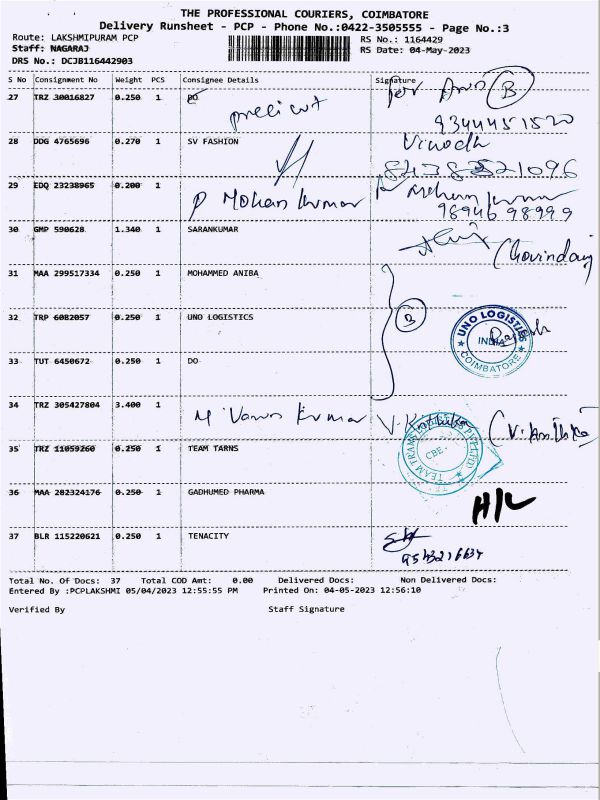 THE PROFESSIONAL COURIERS, COIMBATORE
Delivery Runsheet - PCP - Phone No.:0422-3505555 - Page No.:3
Route: LAKSHMIPURAM PCP RS No.: 1164429
Staff: NAGARAJ RS Date: 04-May-2023
DRS No.: DCJB116442903
S No Consignment No Weight PCS Consignee Details Signature
27 TRZ 30016827 0.250 1 DO
B
9344451520
28 DDG 4765696 0.270 1 SV FASHION Vinodh
29 EDQ 23238965 0.200 1 P Mohan Kumar
98946 98999
30 GMP 590628 1.340 1 SARANKUMAR (Govindaraj
31 MAA 299517334 0.250 1 MOHAMMED ANIBA
32 TRP 6082057 0.250 1 UNO LOGISTICS B UNO LOGISTICS INDIA COIMBATORE
33 TUT 6450672 0.250 1 DO
34 TRZ 305427804 3.400 1
35 TRZ 11059260 0.250 1 TEAM TARNS CBE.
36 MAA 282324176 0.250 1 GADHUMED PHARMA H/L
37 BLR 115220621 0.250 1 TENACITY
Total No. Of Docs: 37 Total COD Amt: 0.00 Delivered Docs: Non Delivered Docs:
Entered By :PCPLAKSHMI 05/04/2023 12:55:55 PM Printed On: 04-05-2023 12:56:10
Verified By Staff Signature